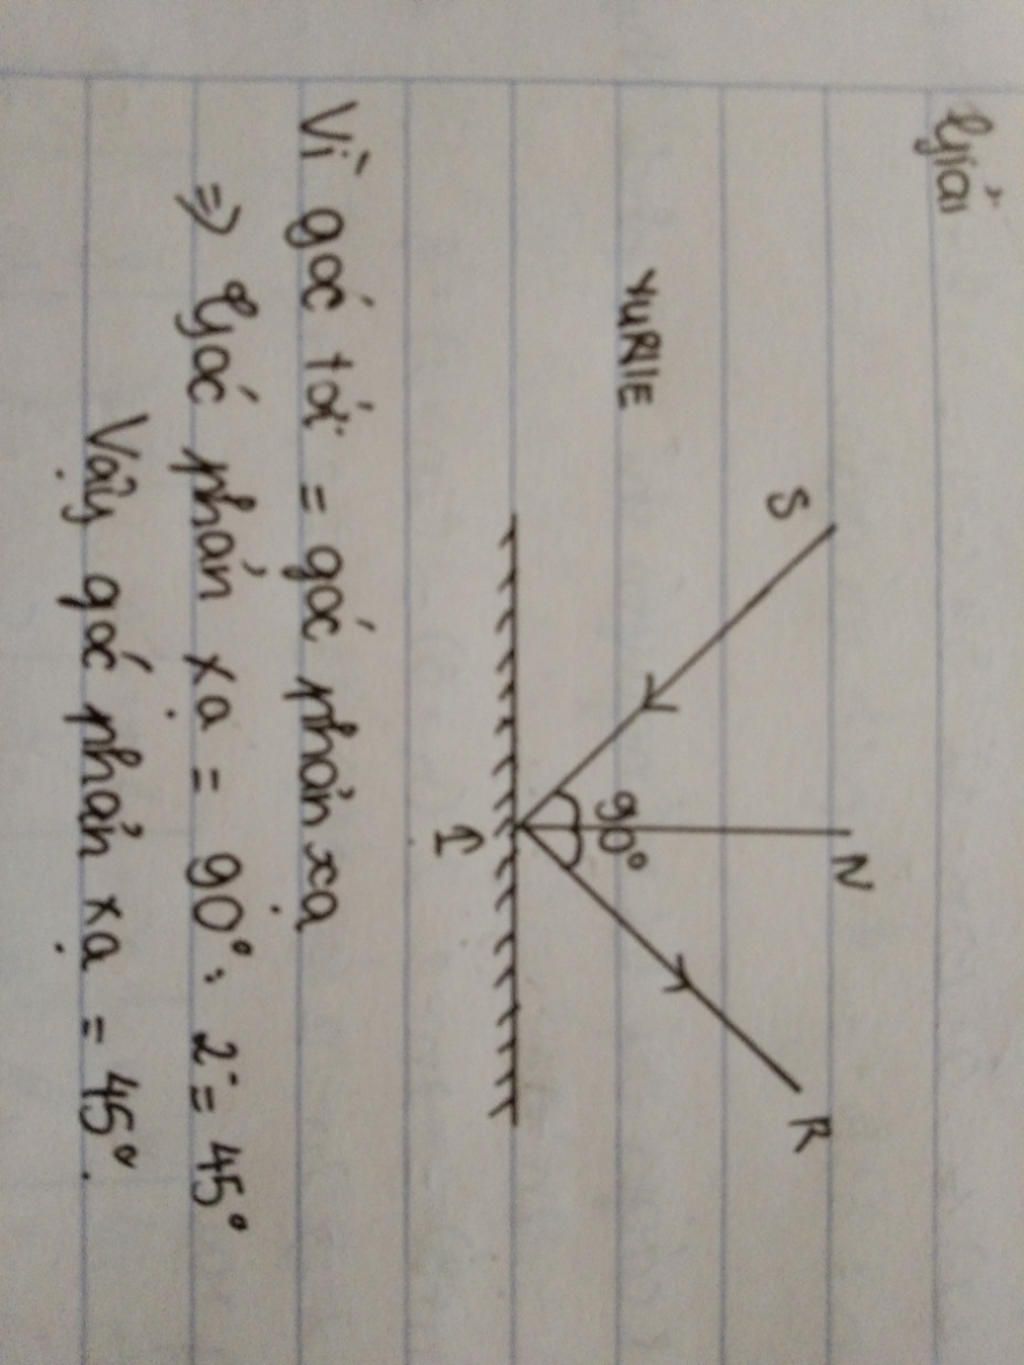 Giải
YURIE
S
N
R
90°
I
Vì góc tới = góc phản xạ
=> Góc phản xạ = 90° : 2 = 45°
Vậy góc phản xạ = 45°.